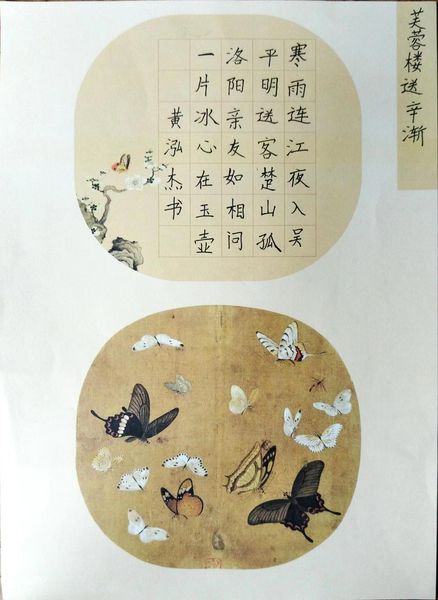 芙蓉楼送辛渐
寒雨连江夜入吴
平明送客楚山孤
洛阳亲友如相问
一片冰心在玉壶
黄泓杰书